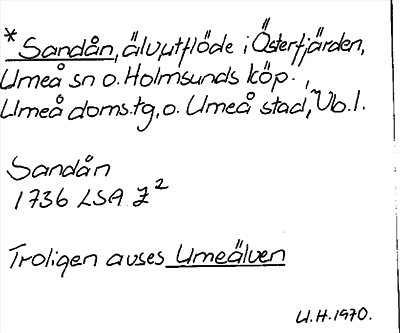 * Sandån, älvutflöde i Österfjärden,
Umeå sn o. Holmsunds köp.,
Umeå doms.tg, o. Umeå stad, Vb.l.
Sandån
1736 LSA Z²
Troligen avses Umeälven
U.H.1970.